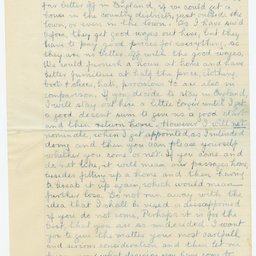 far better off in England, if we could get a
house in the country districts, just outside the
town, or even in the town. As I have said
before, they get good wages out here, but they
have to pay good prices for everything, so
they are no better off with the good wages.
We could furnish a house at home and have
better furniture at half the price, clothing,
boots & shoes, hats, provisions &c are also in
comparison. If you decide to stay in England,
I will stay out here a little longer until I get
a good decent sum to give us a good start
and then return home. However I will not
nominate, when I get appointed as I intended
doing and then you can please yourself
whether you come or not. If you come and
do not like, it will mean our passages home
besides filling up a home and then having
to break it up again, which would mean
further loss. Do not run away with the
idea that I shall be vexed or disappointed
if you do not come, Perhaps it is for the
best, that you are so undecided. I want
you to give the matter your most careful
and serious consideration and then let me
know what decision you have come to